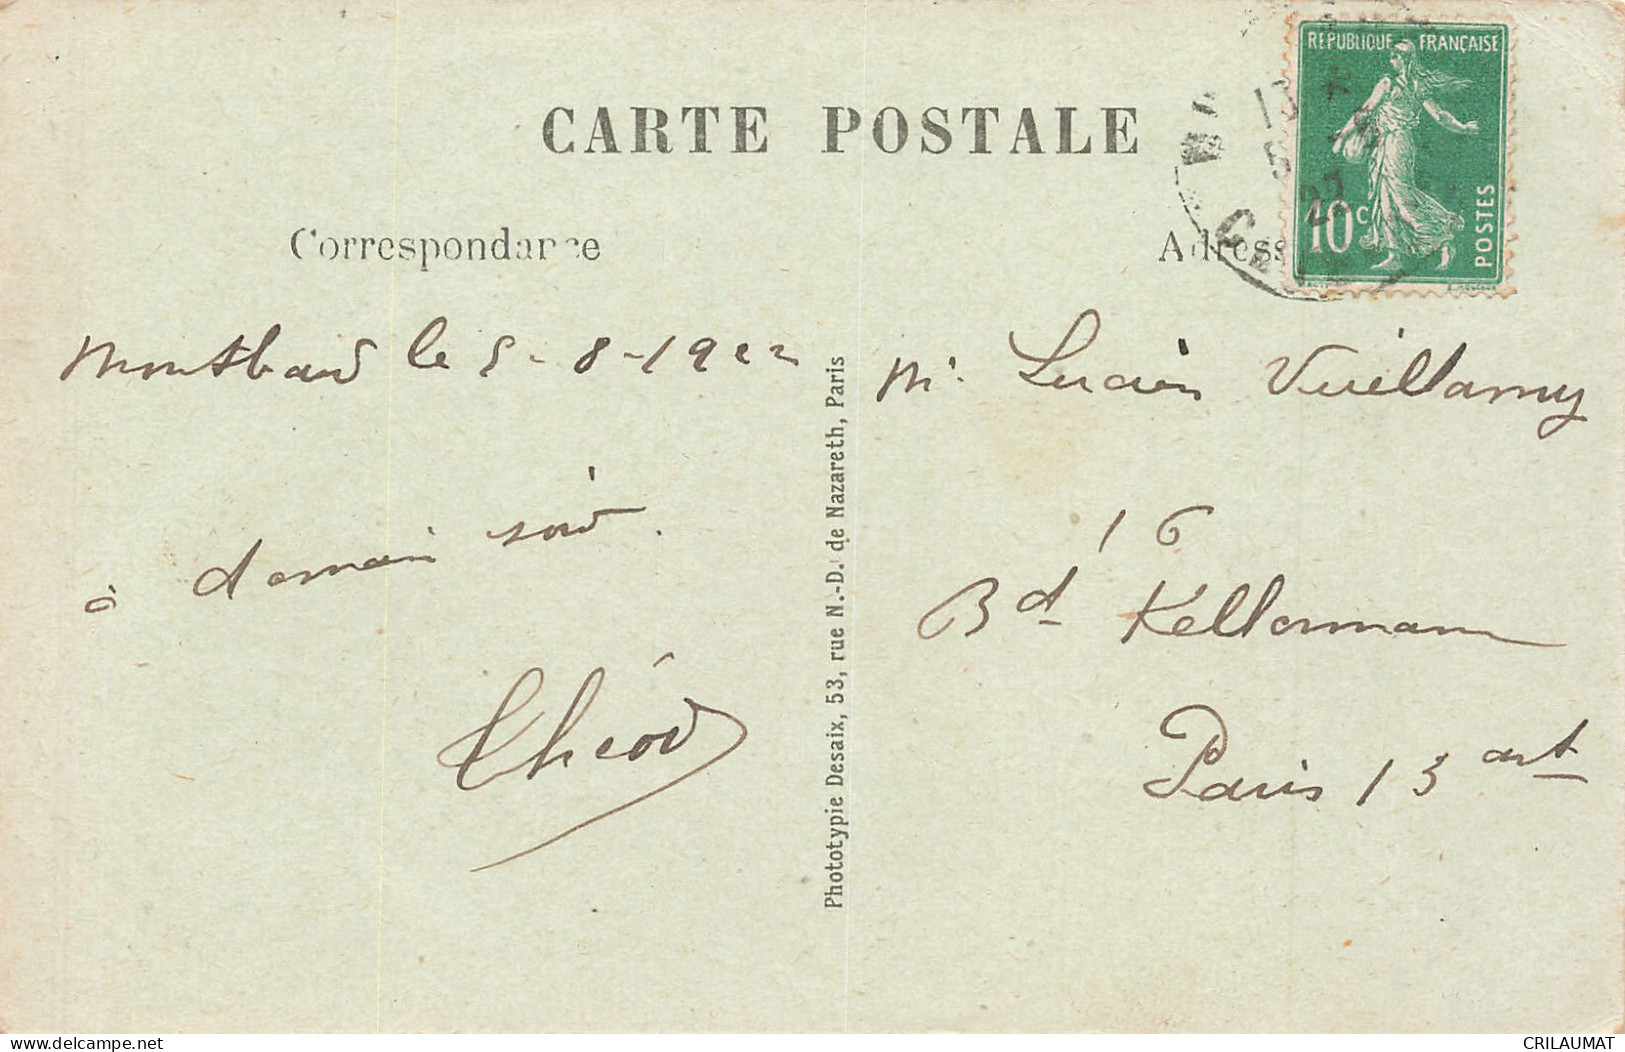 CARTE POSTALE
RÉPUBLIQUE FRANÇAISE
10c
POSTES
Correspondance
Adresse
Montbard le 5-8-1922
à demain soir.
Théod
Phototypie Desaix, 53, rue N.-D. de Nazareth, Paris
Mr Lucien Vuillamy
16
Bd Kellermann
Paris 13 art
delcampe.net
CRILAUMAT